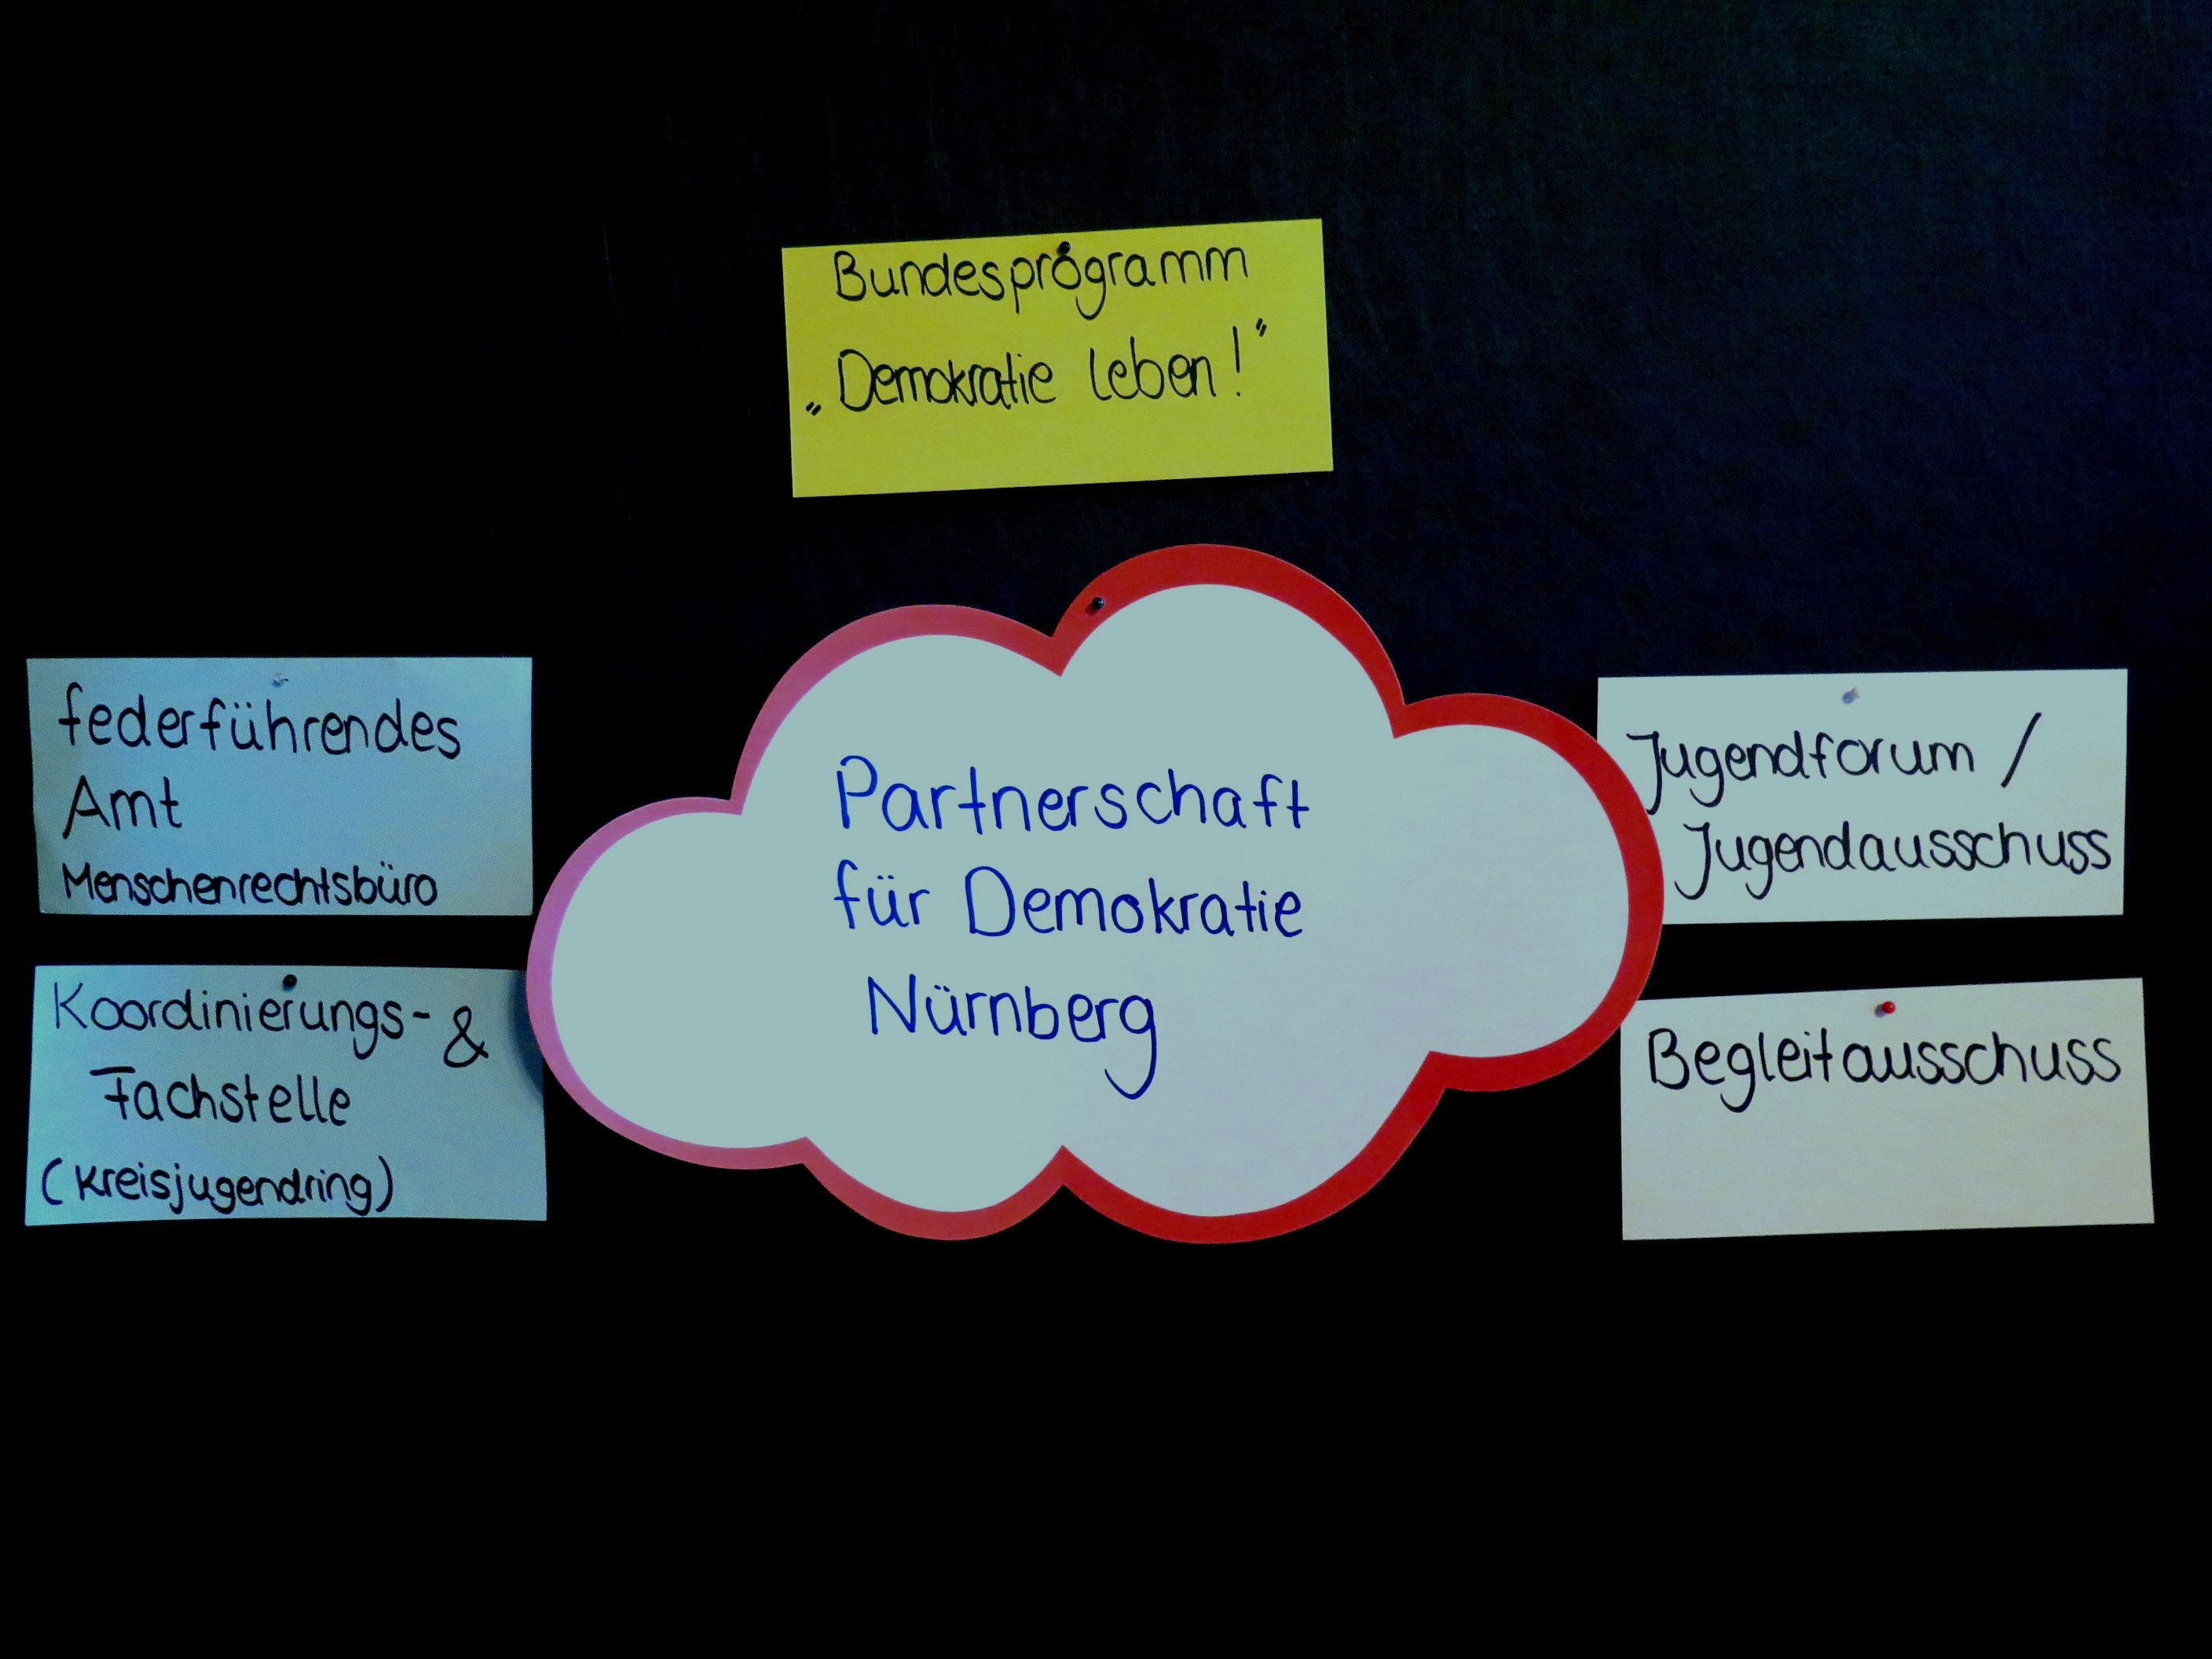 Bundesprogramm
„Demokratie leben!"
federführendes
Amt
Menschenrechtsbüro
Koordinierungs- &
Fachstelle
(Kreisjugendring)
Partnerschaft
für Demokratie
Nürnberg
Jugendforum /
Jugendausschuss
Begleitausschuss